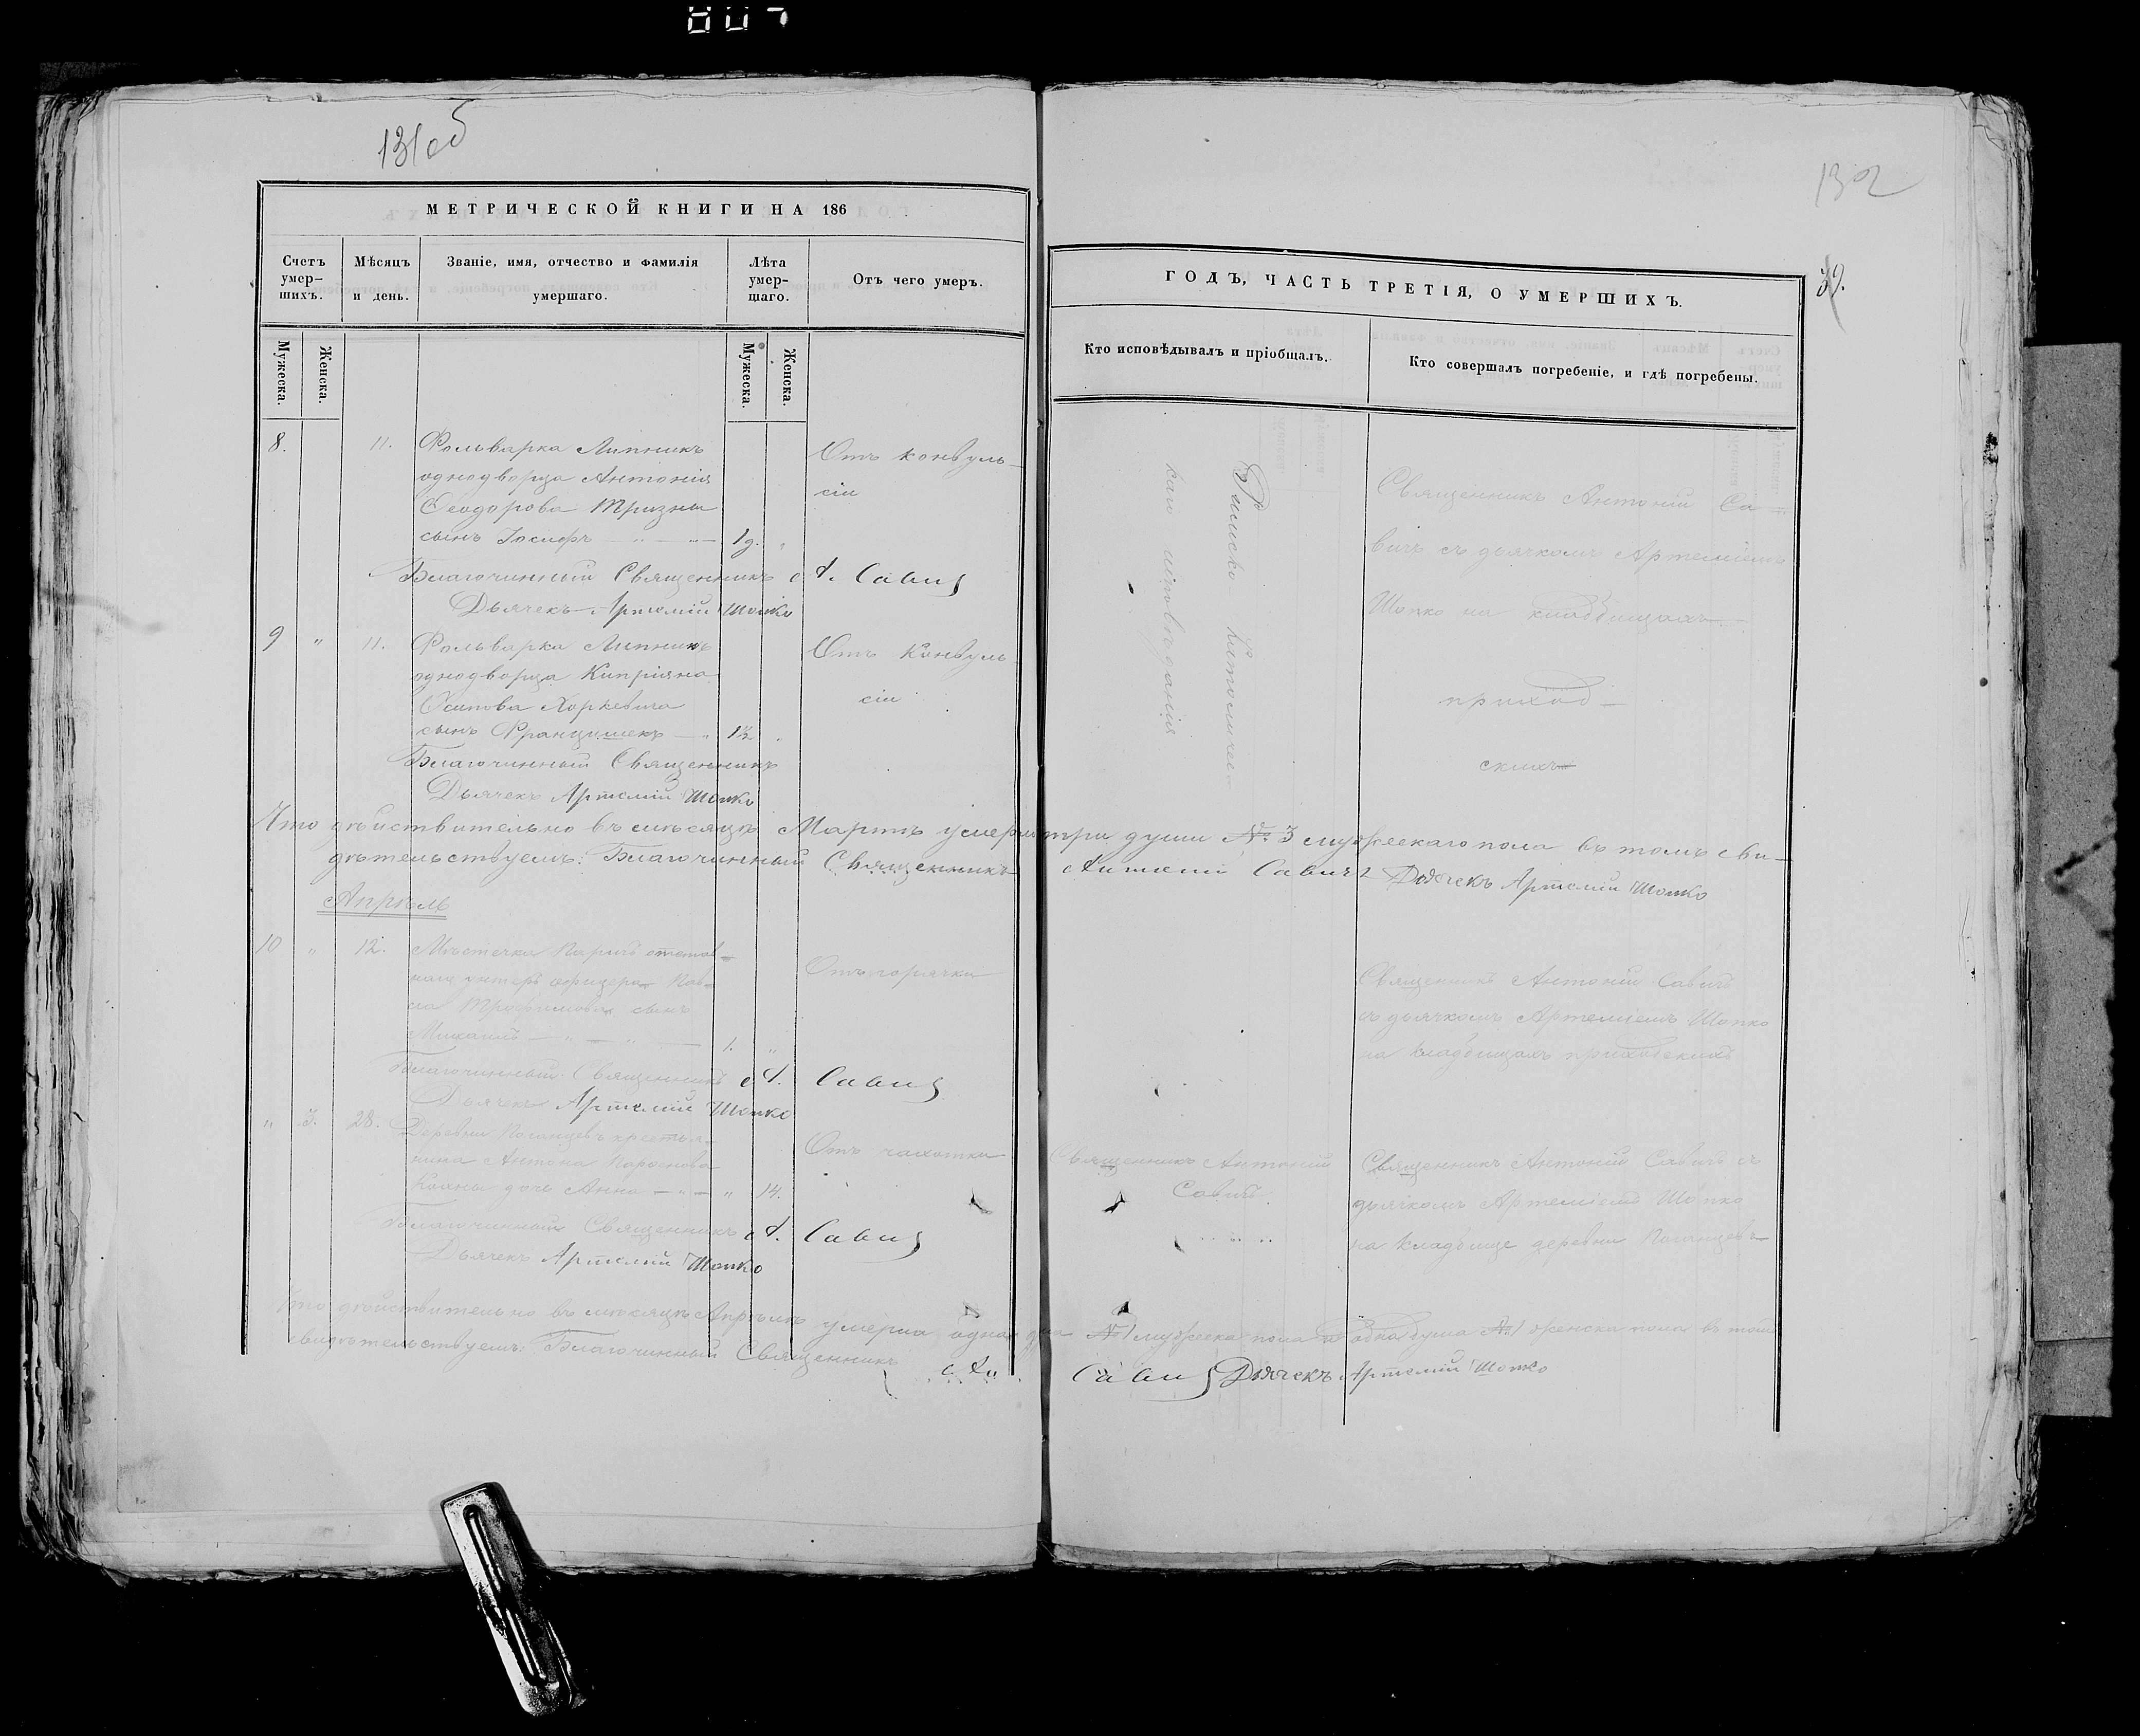 131 об
132
39.
МЕТРИЧЕСКОЙ КНИГИ НА 186
Счетъ умер-шихъ.
Мѣсяцъ и день.
Званіе, имя, отчество и фамилія умершаго.
Лѣта умер-шаго.
Отъ чего умеръ.
Мужеска.
Женска.
Мужеска.
Женска.
8.
11.
Фольварка Липникъ
однодворца Антонія
Ѳеодорова Тризны
сынъ Іосифъ — „ — „ — 1 г. „
Отъ конвуль-
сіи
Благочинный Священникъ А. Савич
Дьячекъ Артемій Шопко
9 „ 11.
Фольварка Липникъ
однодворца Кипріяна
Осипова
сынъ Францишекъ — „ 1½ „
Отъ Конвуль-
сіи
Благочинный Священникъ
Дьячекъ Артемій Шопко
Что дѣйствительно въ мѣсяцѣ Мартѣ умерло три души № 3 мужескаго пола въ томъ сви-
дѣтельствуемъ: Благочинный Священникъ Антоній Савичъ Дьячекъ Артемій Шопко
Апрѣль
10 „ 12.
Мѣстечка Паричъ отстав-
наго унтеръ офицера Пав-
ла сынъ
Михаилъ — „ — „ — 1. „
Отъ горячки
Благочинный Священникъ А. Савич
Дьячекъ Артемій Шопко
„ 3. 28.
Деревни крестья-
нина Антона
дочь Анна — „ — „ 14.
Отъ чахотки
Благочинный Священникъ А. Савич
Дьячекъ Артемій Шопко
Что дѣйствительно въ мѣсяцѣ Апрѣлѣ умерла одна душа № 1 мужеска пола и одна душа № 1 женска пола въ томъ
свидѣтельствуемъ: Благочинный Священникъ Ан. Савич Дьячекъ Артемій Шопко
ГОДЪ, ЧАСТЬ ТРЕТІЯ, О УМЕРШИХЪ.
Кто исповѣдывалъ и пріобщалъ.
Кто совершалъ погребеніе, и гдѣ погребены.
Римско-Католическо-
каго исповѣданія
Священникъ Антоній Са-
вичъ съ дьячкомъ Артеміемъ
Шопко на кладбищахъ
приход-
скихъ
Священникъ Антоній Савичъ
съ дьячкомъ Артеміемъ Шопко
на кладбищахъ приходскихъ
Священникъ Антоній
Савичъ
Священникъ Антоній Савичъ съ
дьячкомъ Артеміемъ Шопко
на кладбище деревни